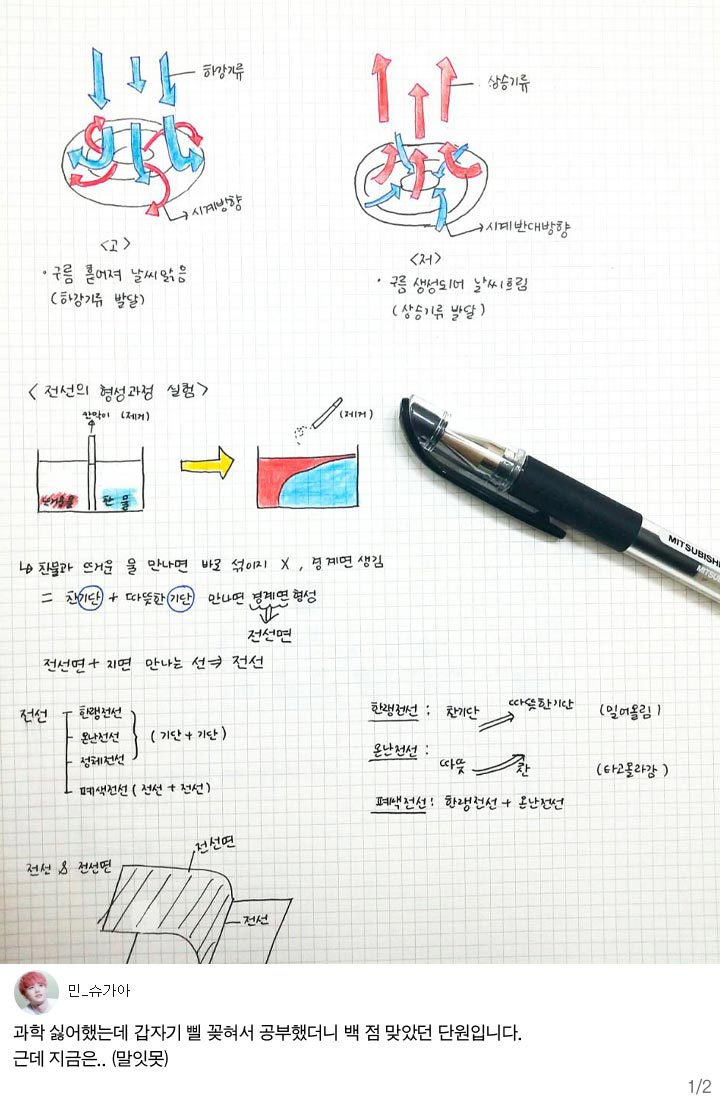 하강기류
상승기류
시계방향
시계반대방향
<고>
<저>
· 구름 흩어져 날씨 맑음
(하강기류 발달)
· 구름 생성되어 날씨 흐림
(상승기류 발달)
<전선의 형성과정 실험>
칸막이 (제거)
(제거)
뜨거운물
찬 물
↳ 찬물과 뜨거운 물 만나면 바로 섞이지 X, 경계면 생김
= 찬기단 + 따뜻한 기단 만나면 경계면 형성
전선면
전선면 + 지면 만나는 선 ⇒ 전선
전선
한랭전선
온난전선
정체전선
(기단 + 기단)
폐색전선 (전선 + 전선)
한랭전선 : 찬기단 따뜻한기단 (밀어올림)
온난전선 : 따뜻 찬 (타고올라감)
폐색전선 : 한랭전선 + 온난전선
전선 & 전선면
전선면
전선
MITSUBISHI
MITSUB
민_슈가아
과학 싫어했는데 갑자기 삘 꽂혀서 공부했더니 백 점 맞았던 단원입니다.
근데 지금은.. (말잇못)
1/2